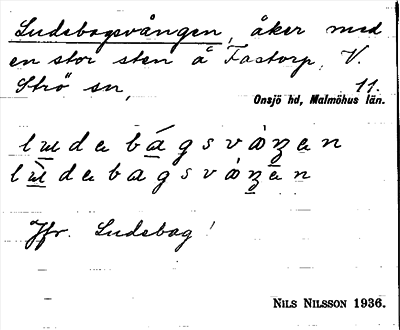 Ludebogsvången, åker med
en stor sten å Fastorp, V.
Strö sn, 11.
Onsjö hd, Malmöhus län.
Jfr. Ludebog!
NILS NILSSON 1936.